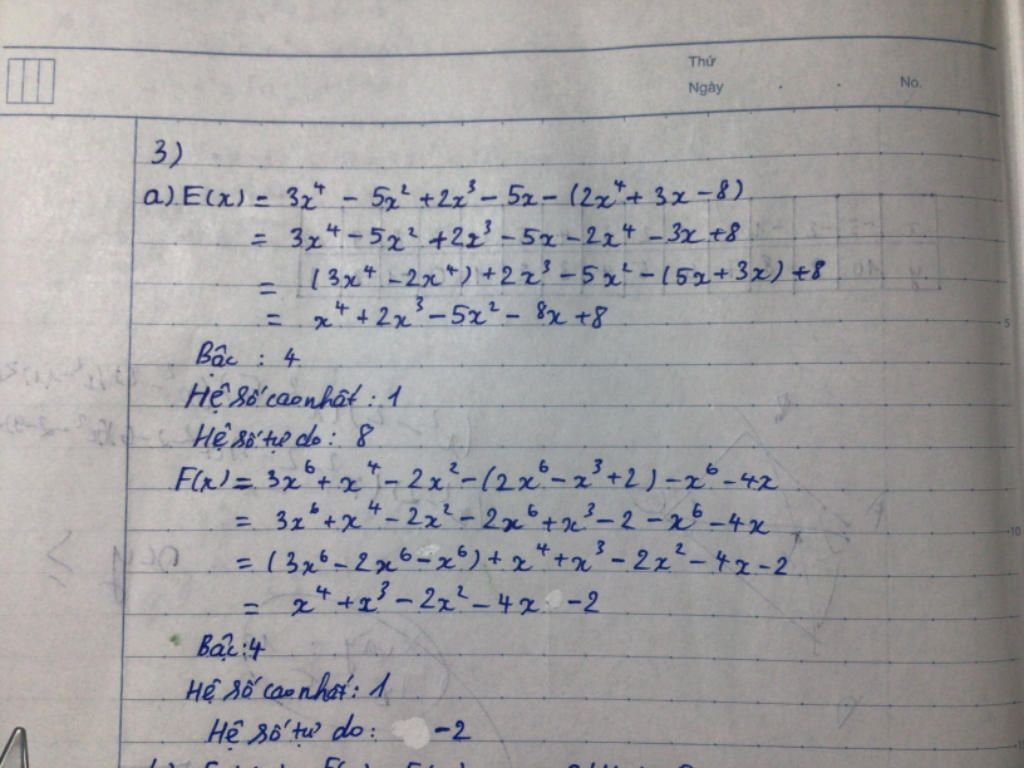 Thứ
Ngày . . No.
3)
a) E(x) = 3x⁴ - 5x² + 2x³ - 5x - (2x⁴ + 3x - 8)
= 3x⁴ - 5x² + 2x³ - 5x - 2x⁴ - 3x + 8
= (3x⁴ - 2x⁴) + 2x³ - 5x² - (5x + 3x) + 8
= x⁴ + 2x³ - 5x² - 8x + 8
5
Bậc : 4
Hệ số cao nhất : 1
Hệ số tự do : 8
F(x) = 3x⁶ + x⁴ - 2x² - (2x⁶ - x³ + 2) - x⁶ - 4x
= 3x⁶ + x⁴ - 2x² - 2x⁶ + x³ - 2 - x⁶ - 4x
10
= (3x⁶ - 2x⁶ - x⁶) + x⁴ + x³ - 2x² - 4x - 2
= x⁴ + x³ - 2x² - 4x - 2
Bậc : 4
Hệ số cao nhất : 1
Hệ số tự do : -2